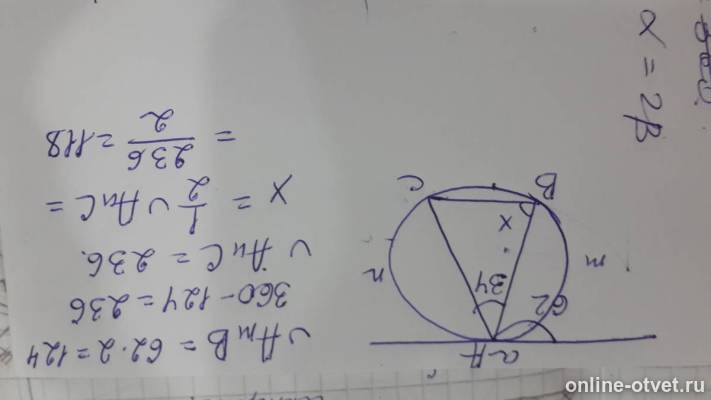 α = 2β
∪AmB = 62·2=124
360-124=236
∪AnC = 236.
x = 1/2 ∪AnC =
= 236/2 = 118
C
B
x
n
m
34
62
a
A
online-otvet.ru